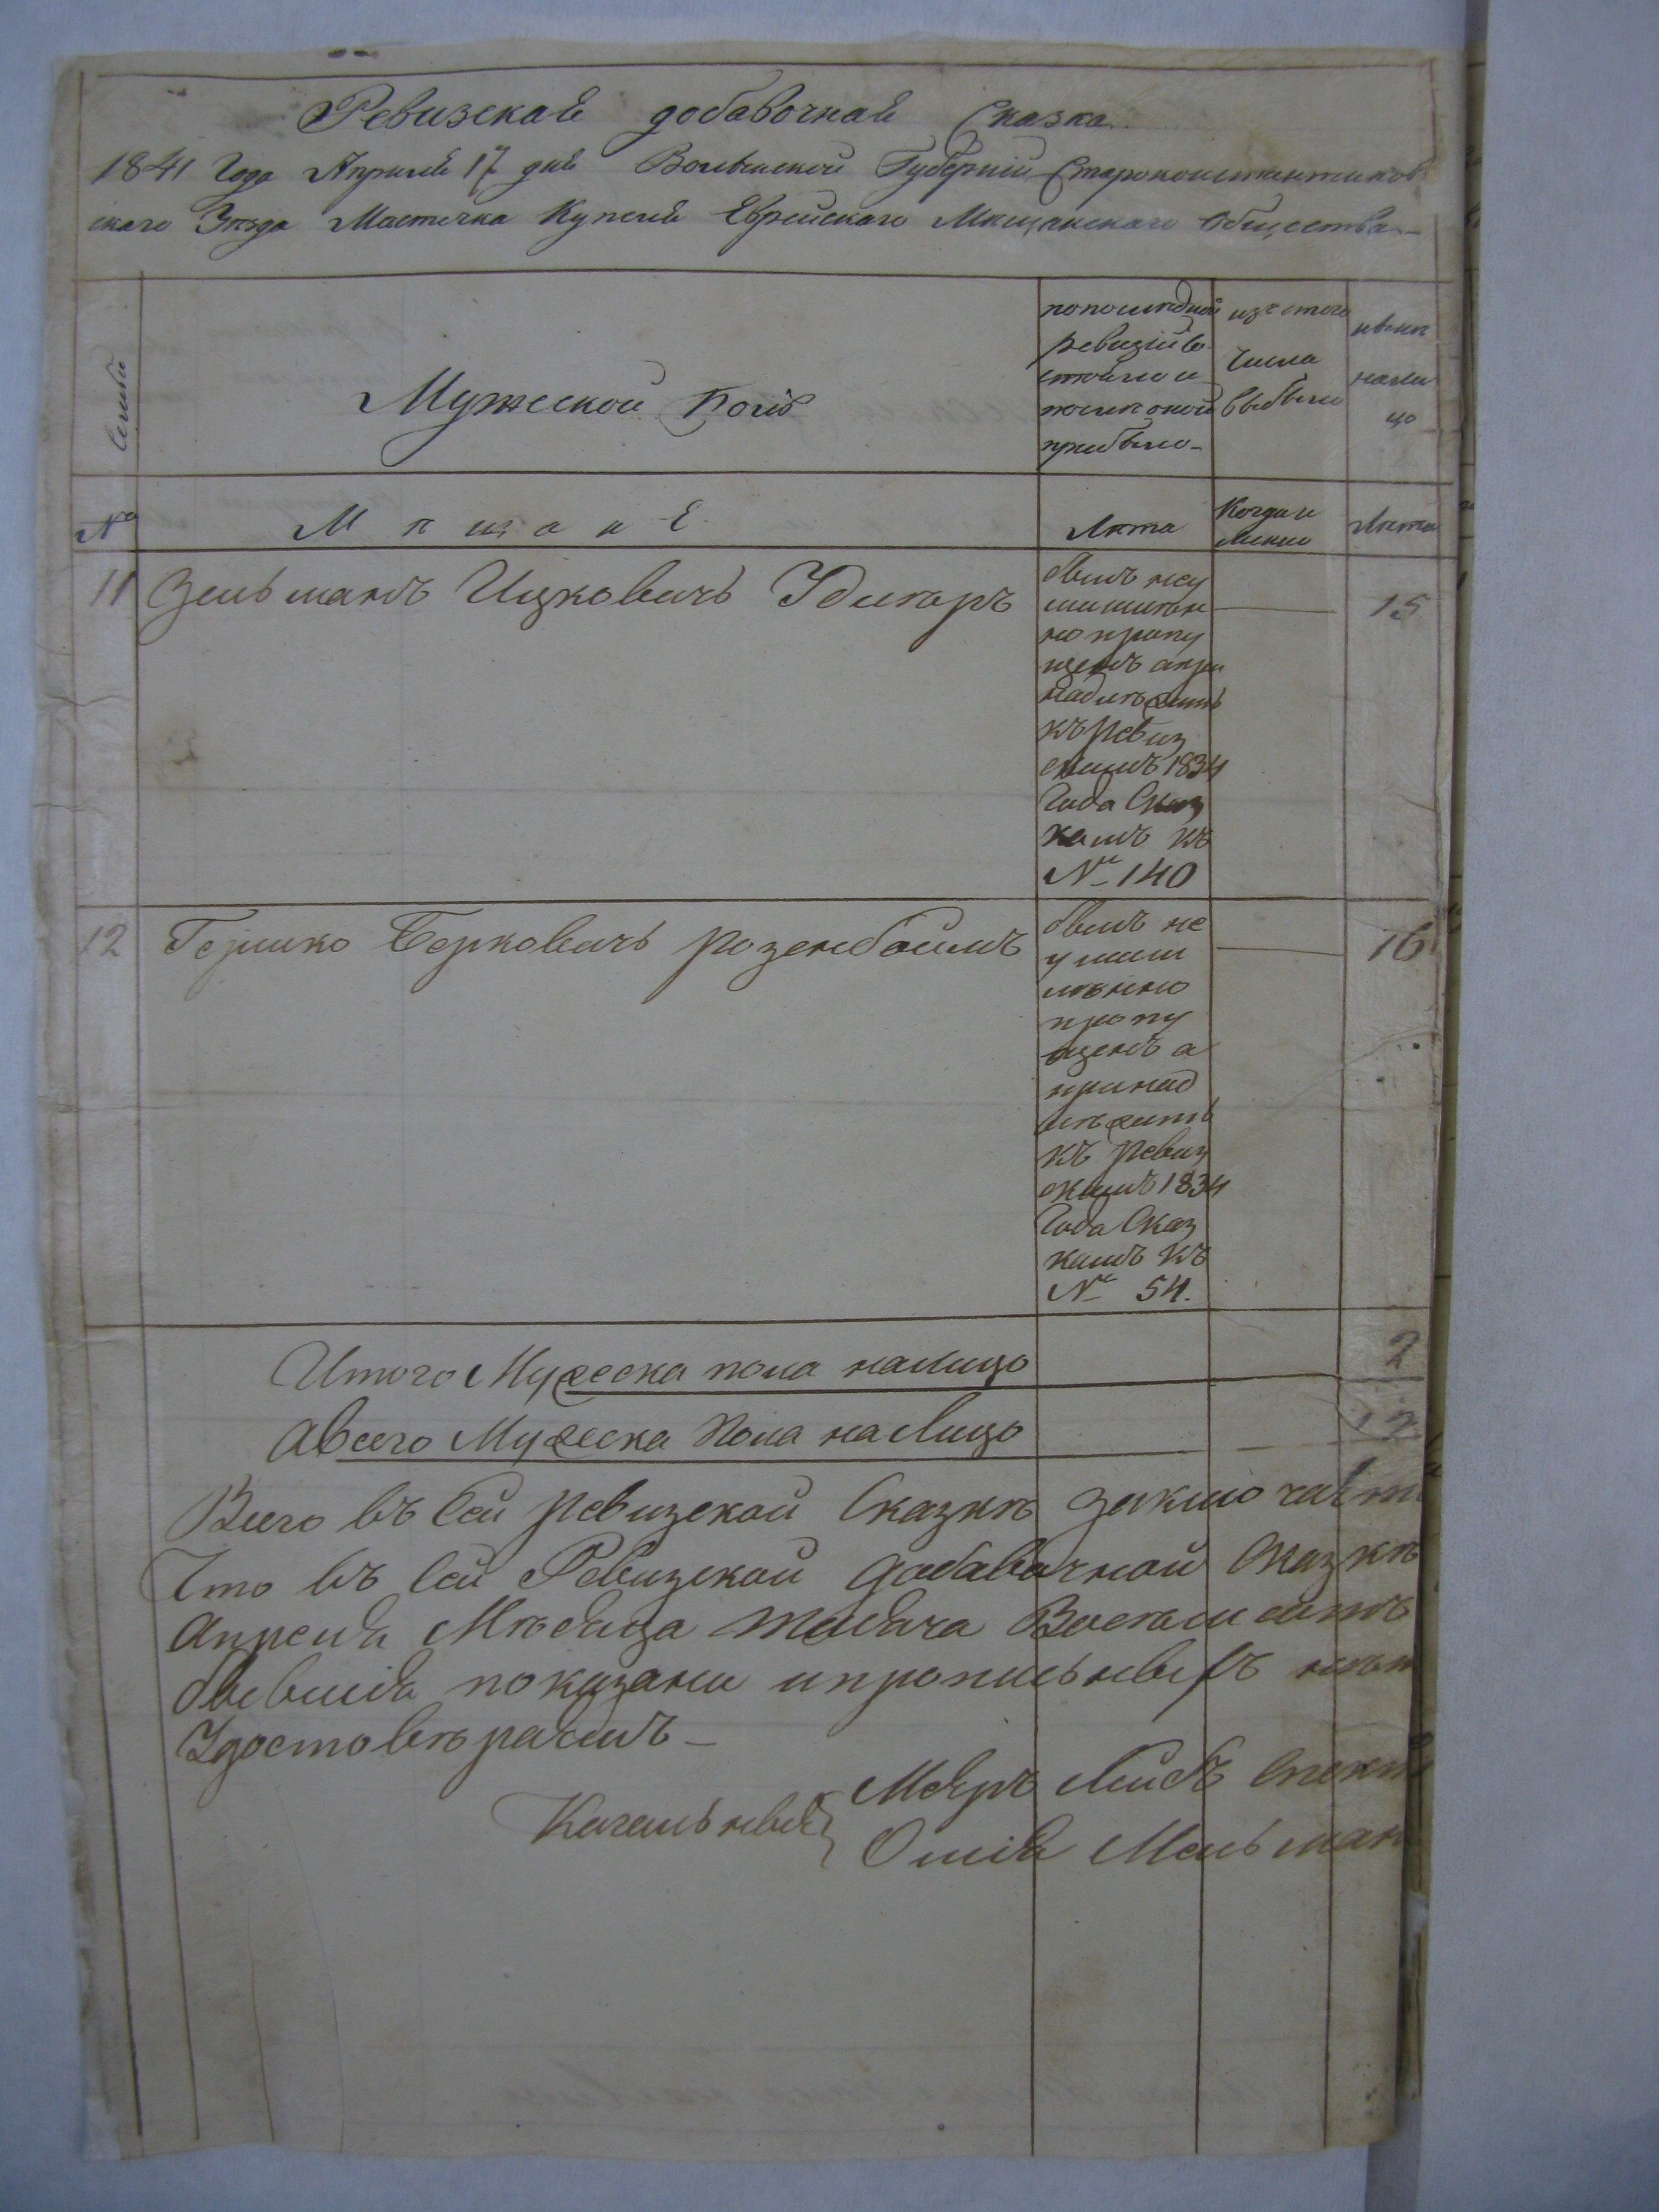 Ревизская добавочная Сказка
1841 Года Апреля 17 дня Волынской Губерніи Староконстантинов
скаго Уѣзда Мастечка Купеля Еврейскаго Мѣщанскаго Общества
Семьи
Мужеской Полъ
по последней
ревизіи со
стояло и
после оной
прибыло
изъ того
числа
выбыло
нынѣ
на ли
цо
№
Мѣщане
Лѣта
Когда и
Лѣта
11 Зельманъ Ицковичъ
былъ неу
мышлен
но пропу
щенъ а при
надлѣжитъ
къ ревиз
скимъ 1834
Года Сказ
камъ къ
№ 140
15
12 Гершко Берковичъ Розенбоймъ
былъ не
умыш
лѣнно
пропу
щенъ а
принад
лѣжитъ
къ ревиз
скимъ 1834
Года Сказ
камъ къ
№ 54.
16
Итого Мужеска пола на лицо 2
А всего Мужеска Пола на Лицо 12
Всего въ Сей ревизской Сказкѣ заключает
Что въ Сей Ревизской добавочной Сказкѣ
Апреля Мѣсяца тысяча Восемсотъ
показани и прописныхъ нѣт
Удостовѣраемъ
Кагальные Меэръ Лейбъ
Ошія Мельман